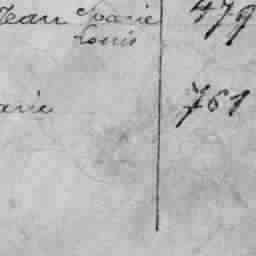 Jean Marie 479
Louis
arie 761